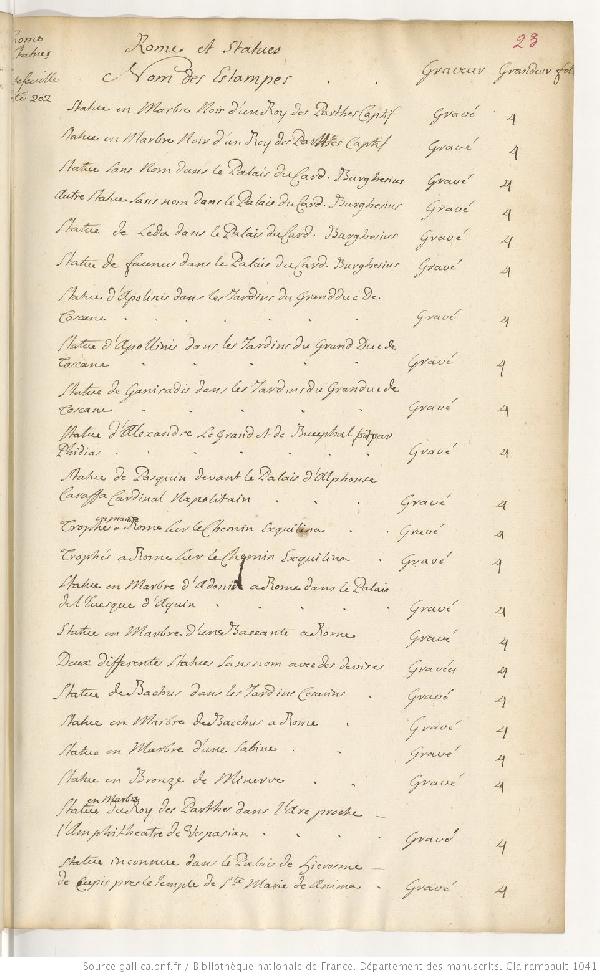 Rome
Statues
Rome et Statues
23
Nom des Estampes . . Graveur Grandeur fol
202
Statue en Marbre Noir d'un Roy des Parthes Captif Gravé 4
Statue en Marbre Noir d'un Roy des Parthes Captif Gravé 4
Statue sans Nom dans le Palais du Card. Burghesius Gravé 4
Autre Statue sans nom dans le Palais du Card. Burghesius Gravé 4
Statue de Leda dans le Palais du Card. Burghesius Gravé 4
Statue de faunus dans le Palais du Card. Burghesius Gravé 4
Statue d'Apolinis dans les Jardins du Grand duc De
Toscane . . . . . Gravé 4
Statue d'Apollinis dans les Jardins du Grand Duc de
Toscane . . . . . Gravé 4
Statue de Ganimadis dans les Jardins du Granduc de
Toscane . . . . . Gravé 4
Statue d'Alexandre Le Grand et de Bucephal par
Phidias . . . . . Gravé 4
Statue de Pasquin devant le Palais d'Alphonse
Caraffa Cardinal Napolitain . . . Gravé 4
Trophé a Rome sur le Chemin Exquilina . Gravé 4
Trophés a Rome sur le Chemin Exquilina . Gravé 4
Statue en Marbre d'Adonis a Rome dans le Palais
de l'Evesque d'Aquin . . . . Gravé 4
Statue en Marbre d'une Baccante a Rome Gravé 4
Deux differente Statues sans nom avec des devises Gravées 4
Statue de Bachus dans les Jardins Cesarins . Gravé 4
Statue en Marbre de Bacchus a Rome . Gravé 4
Statue en Marbre d'une Sabine . . Gravé 4
Statue en Bronze de Minerve . . Gravé 4
en Marbre
Statue du Roy des Parthes dans l'Arc proche
l'Amphitheatre de Vespasian . . . Gravé 4
Statue inconnue dans le Palais de Hierosme
de Cupis pres le temple de Ste Marie de Anima . Gravé 4
Source gallica.bnf.fr / Bibliothèque nationale de France. Département des manuscrits. Clairambault 1041